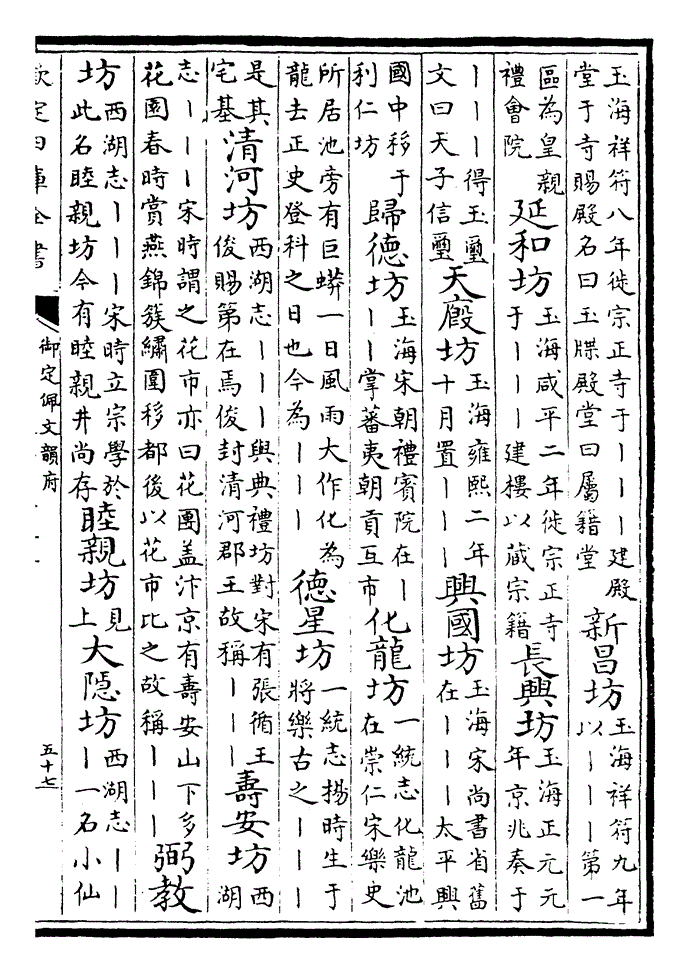 玉海祥符八年徙宗正寺于丨丨丨建殿堂于寺賜殿名曰玉牒殿堂曰屬籍堂新昌坊玉海祥符九年以丨丨丨第一
區為皇親禮會院延和坊玉海咸平二年徙宗正寺于丨丨丨建樓以藏宗籍長興坊玉海正元元年京兆奏于
丨丨丨得玉璽文曰天子信璽天廏坊玉海雍熙二年十月置丨丨丨興國坊玉海宋尚書省舊在丨丨丨太平興
國中移于利仁坊歸德坊玉海宋朝禮賓院在丨丨丨掌蕃夷朝貢互市化龍坊一統志化龍池在崇仁宋樂史
所居池旁有巨蟒一日風雨大作化為龍去正史登科之日也今為丨丨丨德星坊一統志楊時生于將樂古之丨丨丨
是其宅基清河坊西湖志丨丨丨與典禮坊對宋有張循王俊賜第在焉俊封清河郡王故稱丨丨丨壽安坊西湖
志丨丨丨宋時謂之花市亦曰花團盖汴京有壽安山下多花園春時賞燕錦簇繡圍移都後以花市比之故稱丨丨丨弼教
坊西湖志丨丨丨宋時立宗學於此名睦親坊今有睦親井尚存睦親坊見上大隱坊西湖志丨丨丨一名小仙
欽定四庫全書
御定佩文韻府
五十七